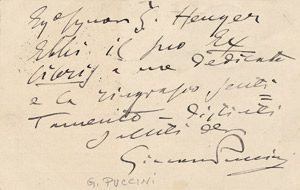 Egr Signor J. Henger
Ebbi il suo Ex
libris a me dedicato
e la ringrazio senti
tamente – distinti
saluti de
Giacomo Puccini
G. PUCCINI